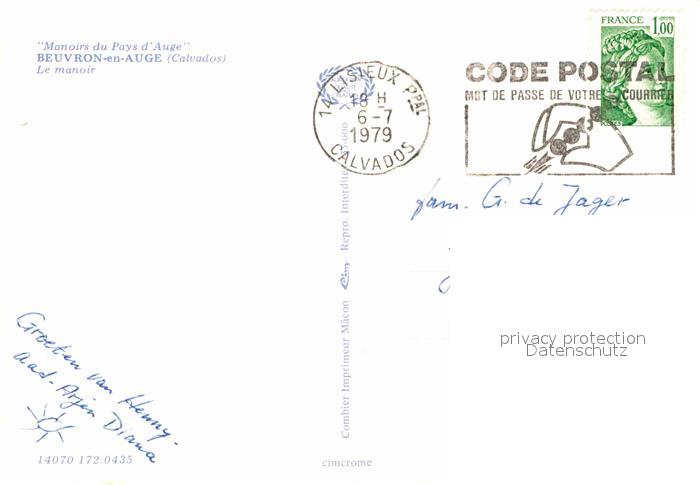 "Manoirs du Pays d'Auge"
BEUVRON-en-AUGE (Calvados)
Le manoir
14 LISIEUX PPAL
18 H
6-7
1979
CALVADOS
FRANCE
1,00
CODE POSTAL
MOT DE PASSE DE VOTRE COURRIER
fam. G. de Jager
privacy protection
Datenschutz
Groeten van Henny-
Aad-Arjen Diana
14070 172.0435
Combier Imprimeur Mâcon Cim Repro. Interdite
cimcrome